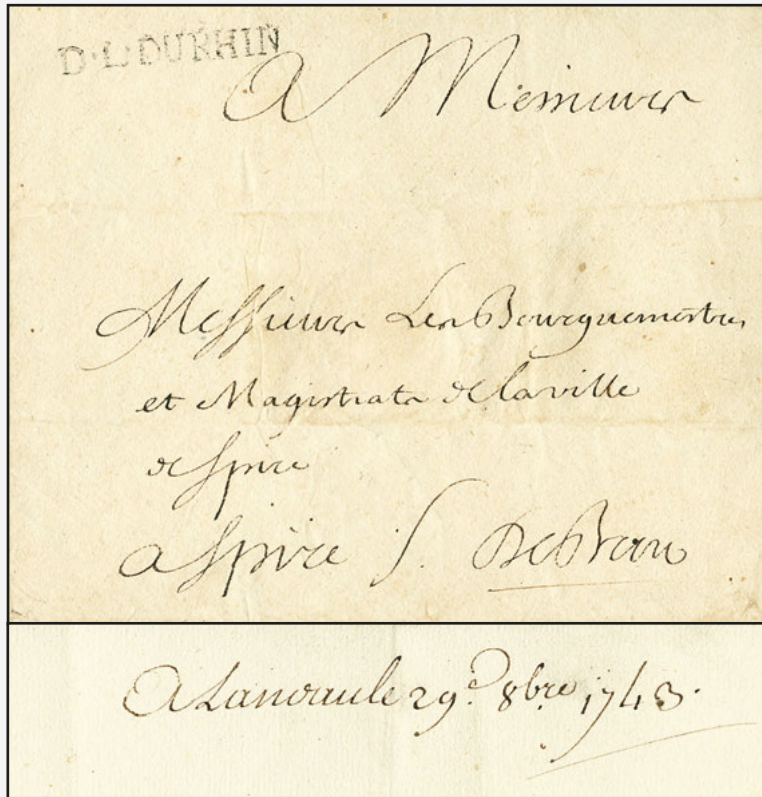 D.L.DURHIN
A Messieurs
Messieurs Les Bourguemestres
et Magistrats de la ville
de Spire
a Spire
A Landau le 29.e 8bre 1743.